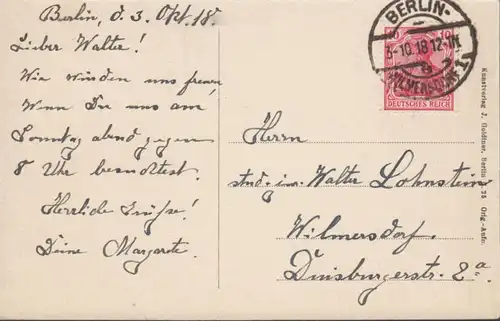 Berlin, d. 3. Okt. 18.
Lieber Walter!
Wir würden uns freuen
Wenn Du uns am
Sonntag abend gegen
8 Uhr besuchtest.
Herzliche Grüße!
Deine Margarete.
BERLIN-
3-10.18 12-1N
WILMERSDORF 1
10 10
DEUTSCHES REICH
Herrn
stud. ing. Walter Lohnstein
Wilmersdorf.
Duisburgerstr. 2a.
Kunstverlag J. Goldiner, Berlin C 25 Orig.-Aufn.